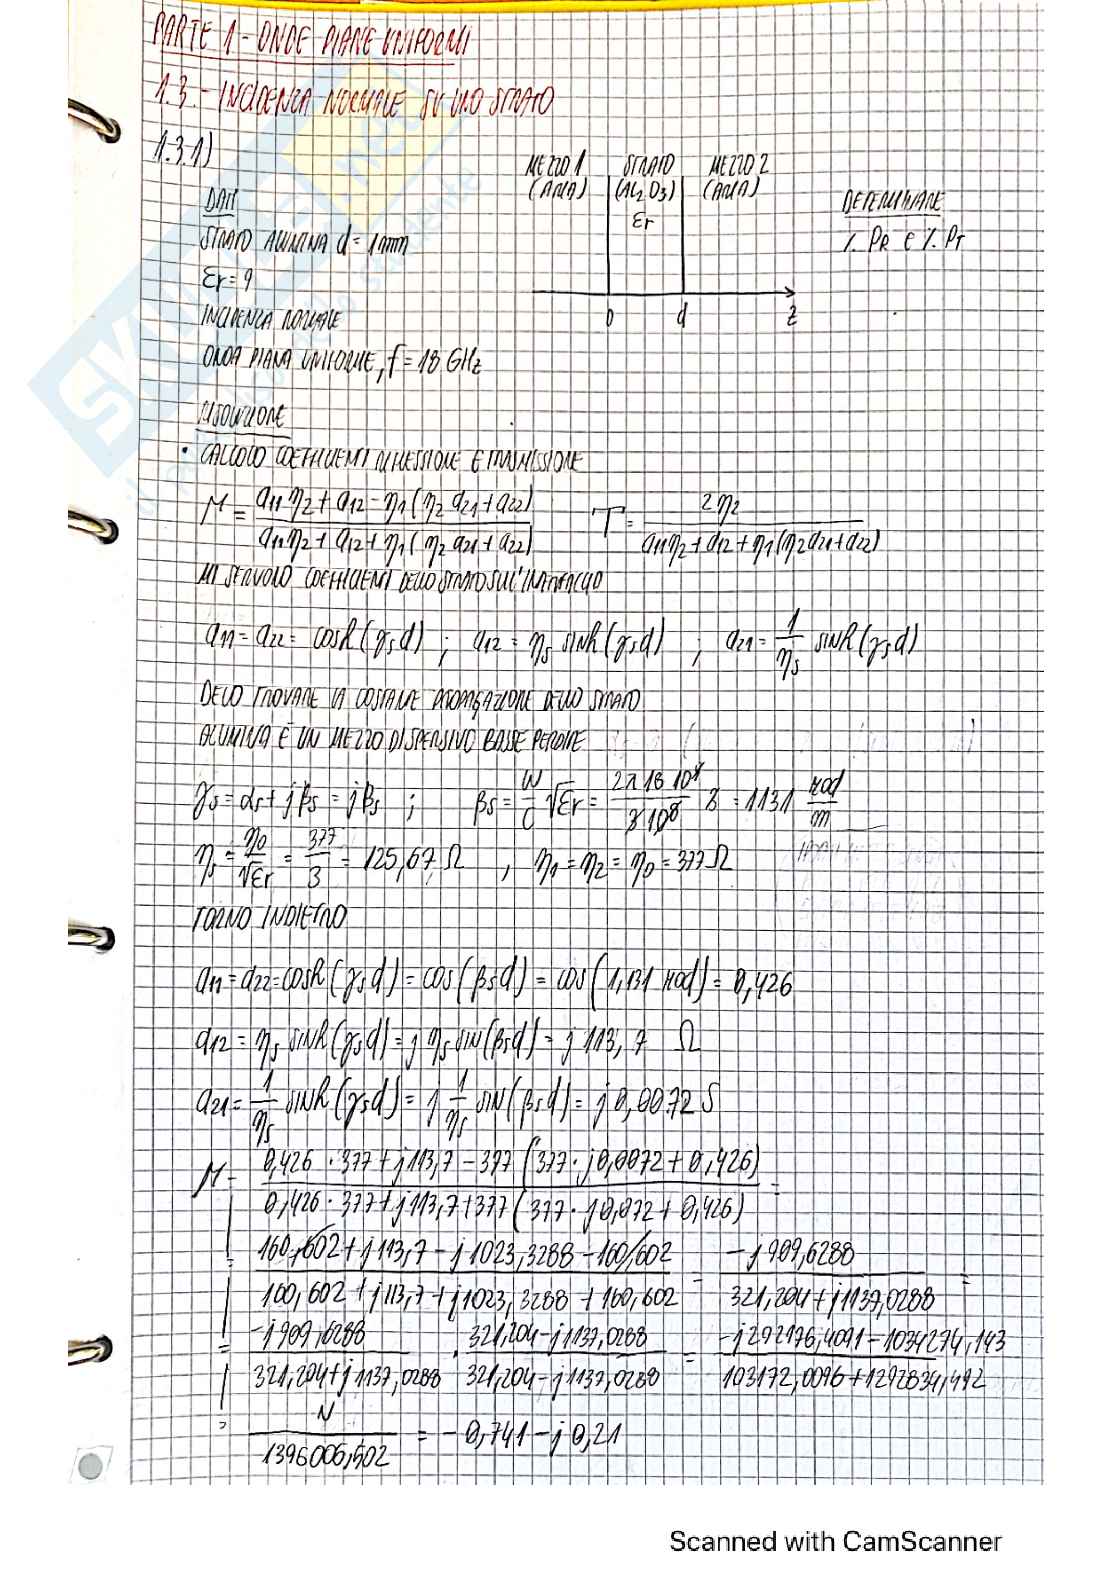 PARTE 1 - ONDE PIANE UNIFORMI
1.3. - INCIDENZA NORMALE SU UNO STRATO
1.3.1)
MEZZO 1 STRATO MEZZO 2
(ARIA) (Al2O3) (ARIA)
εr
DATI
DETERMINARE
STRATO ALLUMINA d = 1mm
% PR E % PT
εr = 9
0 d z
INCIDENZA NORMALE
ONDA PIANA UNIFORME, f = 18 GHz
RISOLUZIONE
• CALCOLO COEFFICIENTI RIFLESSIONE E TRASMISSIONE
Γ = a11η2 + a12 - η1(η2 a21 + a22) / a11η2 + a12 + η1(η2 a21 + a22) T = 2η2 / a11η2 + a12 + η1(η2 a21 + a22)
MI SERVONO COEFFICIENTI DELLO STRATO SULL'INTERFACCIA
a11 = a22 = cosh(γs d) ; a12 = ηs sinh(γs d) ; a21 = 1/ηs sinh(γs d)
DEVO TROVARE LA COSTANTE PROPAGAZIONE DELLO STRATO
ALLUMINA È UN MEZZO DISPERSIVO BASSE PERDITE
γs = αs + jβs = jβs ; βs = ω/c √εr = 2π 18 10^9 / 3 10^8 3 = 1131 rad/m
ηs = η0/√εr = 377/3 = 125,67 Ω , η1 = η2 = η0 = 377 Ω
TORNO INDIETRO
a11 = a22 = cosh(γs d) = cos(βs d) = cos(1,131 rad) = 0,426
a12 = ηs sinh(γs d) = j ηs sin(βs d) = j 113,7 Ω
a21 = 1/ηs sinh(γs d) = j 1/ηs sin(βs d) = j 0,0072 S
Γ = 0,426 · 377 + j113,7 - 377 (377 · j0,0072 + 0,426) / 0,426 · 377 + j113,7 + 377 (377 · j0,072 + 0,426) =
= 160,602 + j113,7 - j1023,3288 - 160,602 / 160,602 + j113,7 + j1023,3288 + 160,602 = -j909,6288 / 321,204 + j1137,0288 =
= -j909,6288 / 321,204 + j1137,0288 · 321,204 - j1137,0288 / 321,204 - j1137,0288 = -j292176,4091 - 1034274,143 / 103172,0096 + 1292834,492
= N / 1396006,502 = -0,741 - j0,21
Scanned with CamScanner